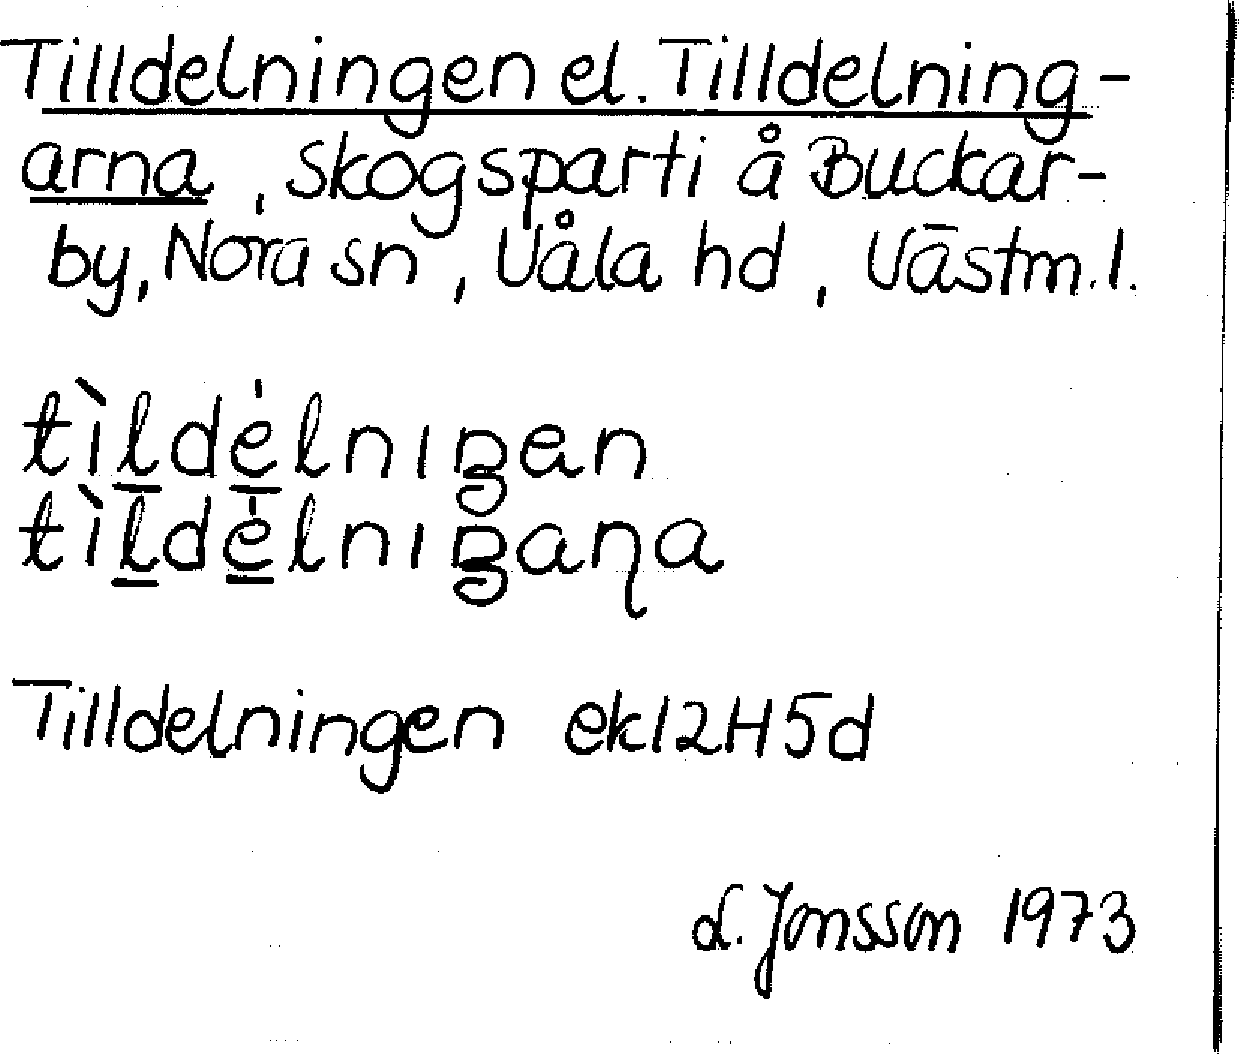 Tilldelningen el. Tilldelning-
arna, skogsparti å Buckar-
by, Nora sn, Våla hd, Västm.l.
tìl̲dė̲lnıŋen
tìl̲dė̲lnıŋaɳa
Tilldelningen ek 12H5d
L. Jonsson 1973